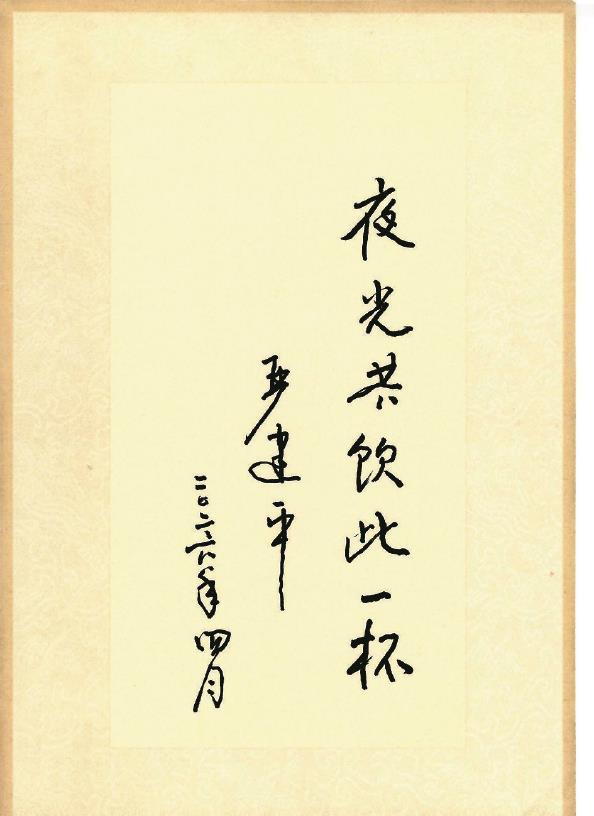 夜光共飲此一杯
建平
二〇二六年四月